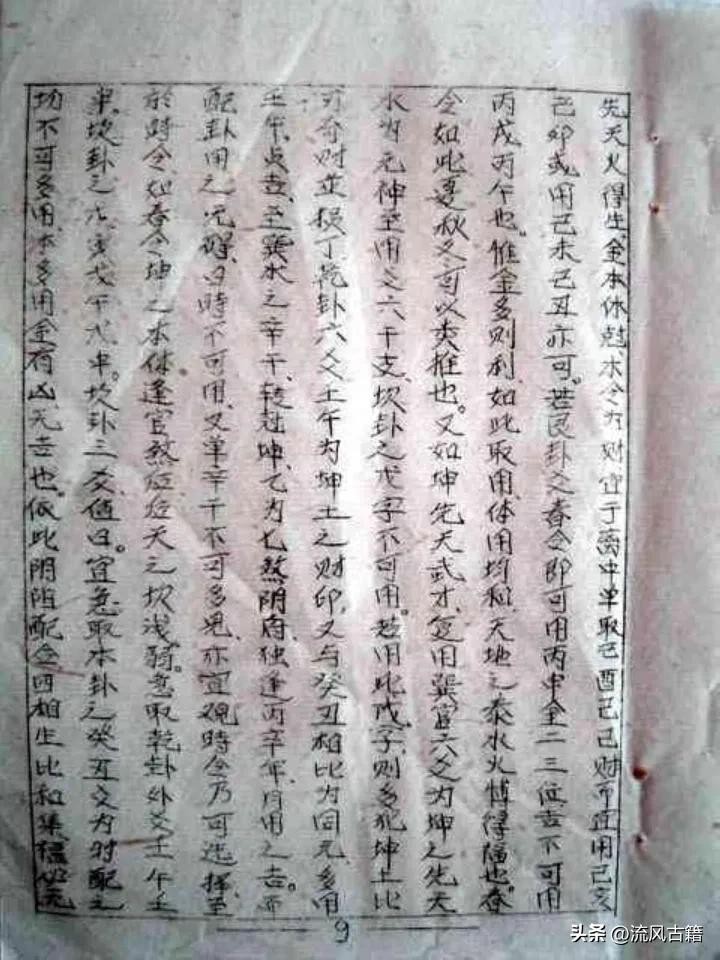 先天火得生、金本休尅、木令为财宜于离中单取己酉己己财而宜用己亥
己卯或用己未己丑亦可。若艮卦之春令即可用丙申金二三位吉不可用
丙戌丙午也。惟金多则利、如此取用、体用均和、天地之泰水火博得福也。春
令如此、夏秋又可以类推也。又如坤先天武才、宜用巽官六爻为坤之先天
水为元神至用爻六干支、坎卦之戊字不可用。若用此戊字、则多犯坤土比
刃夺财並损丁乾卦六爻土午为坤土之财印、又与癸丑相比为同元多用
壬午、贞吉、至巽水之辛干、转过坤、乙为七煞阴府、独逢丙辛年月用之吉。不
配卦用之、元辰、日時不可用、又单辛干不可多見、亦宜观時令乃可选择、至
於時令、如春令坤之本体、逢官煞 天之坎浅弱。急取乾卦外爻壬午壬
坎卦之戊寅戊午戊申。坎卦三爻值日。宜急取本卦之癸丑爻为财配之
切不可多用、木多用金有凶、无吉也。依此阴阳配合四相生比和集福必
9
头条 @流风古籍